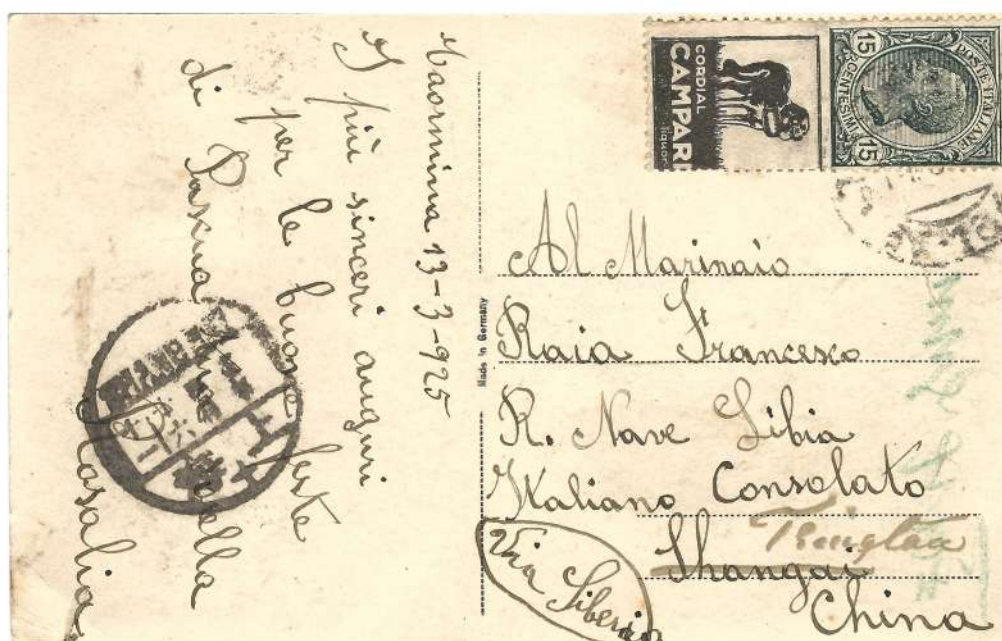 Taormina 13-3-925
I più sinceri auguri
per le buone feste
di Pasqua
Rosalia
Made in Germany
CORDIAL
CAMPARI
liquor
POSTE ITALIANE
15 CENTESIMI 15
Al Marinaio
Raia Francesco
R. Nave Libia
Italiano Consolato
Tsingtao
Shangai
China
Via Siberia
SHANGHAI